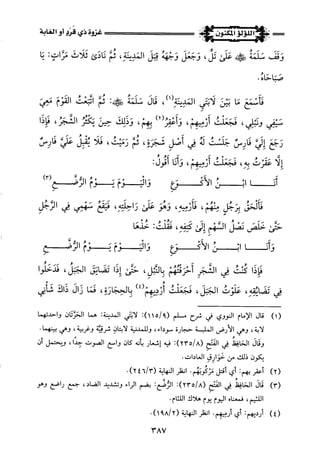 اللؤلؤ المكنون
غزوة ذي قرد أو الغابة
وَقَفَ سَلَمَةُ ﷺ عَلَى تَلٍّ، وَجَعَلَ وَجْهَهُ قِبَلَ المَدِينَةِ، ثُمَّ نَادَى ثَلَاثَ مَرَّاتٍ: يَا
صَبَاحَاهُ.
فَأَسْمَعَ مَا بَيْنَ لَابَتَيِ المَدِينَةِ(١)، قَالَ سَلَمَةُ: ثُمَّ اتَّبَعْتُ القَوْمَ مَعِيَ
سَيْفِي وَنَبْلِي، فَجَعَلْتُ أَرْمِيهِمْ، وَأَعْقِرُ(٢) بِهِمْ، وَذَلِكَ حِينَ يَكْثُرُ الشَّجَرُ، فَإِذَا
رَجَعَ إِلَيَّ فَارِسٌ جَلَسْتُ لَهُ فِي أَصْلِ شَجَرَةٍ، ثُمَّ رَمَيْتُ، فَلَا يُقْبِلُ عَلَيَّ فَارِسٌ
إِلَّا عَقَرْتُ بِهِ، فَجَعَلْتُ أَرْمِيهِمْ، وَأَنَا أَقُولُ:
أَنَا ابْنُ الأَكْوَعِ وَالْيَوْمُ يَوْمُ الرُّضَّعِ(٣)
فَأَلْحَقُ بِرَجُلٍ مِنْهُمْ، فَأَرْمِيهِ، وَهُوَ عَلَى رَاحِلَتِهِ، فَيَقَعُ سَهْمِي فِي الرَّجُلِ
حَتَّى خَلَصَ نَصْلُ السَّهْمِ إِلَى كَتِفِهِ، فَقُلْتُ: خُذْهَا
وَأَنَا ابْنُ الأَكْوَعِ وَالْيَوْمُ يَوْمُ الرُّضَّعِ
فَإِذَا كُنْتُ فِي الشَّجَرِ أَحْرَقْتُهُمْ بِالنَّبْلِ، حَتَّى إِذَا تَضَايَقَ الجَبَلُ، فَدَخَلُوا
فِي تَضَايُقِهِ، عَلَوْتُ الجَبَلَ، فَجَعَلْتُ أُرَدِّيهِمْ(٤) بِالحِجَارَةِ، فَمَا زَالَ ذَاكَ شَأْنِي
(١) قال الإمام النووي في شرح مسلم (١١٥/٩): لابتي المدينة: هما الحرَّتان واحدتهما
لابة، وهي الأرض الملبسة حجارة سوداء، وللمدينة لابتان شرقية وغربية، وهي بينهما.
وقال الحافظ في الفتح (٢٣٥/٨): فيه إشعار بأنه كان واسع الصوت جدًا، ويحتمل أن
يكون ذلك من خوارق العادات.
(٢) أعقر بهم: أي أقتل مركوبهم. انظر النهاية (٢٤٦/٣).
(٣) قال الحافظ في الفتح (٢٣٥/٨): الرُّضَّع: بضم الراء وتشديد الضاد، جمع راضع وهو
اللئيم، فمعناه اليوم يوم هلاك اللئام.
(٤) أرديهم: أي أرميهم. انظر النهاية (١٩٨/٢).
٣٨٧